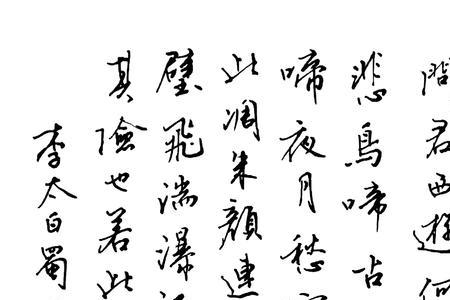 問君西遊何
悲鳥啼古
啼夜月愁
此凋朱顏連
壁飛湍瀑
其險也若此
李太白蜀